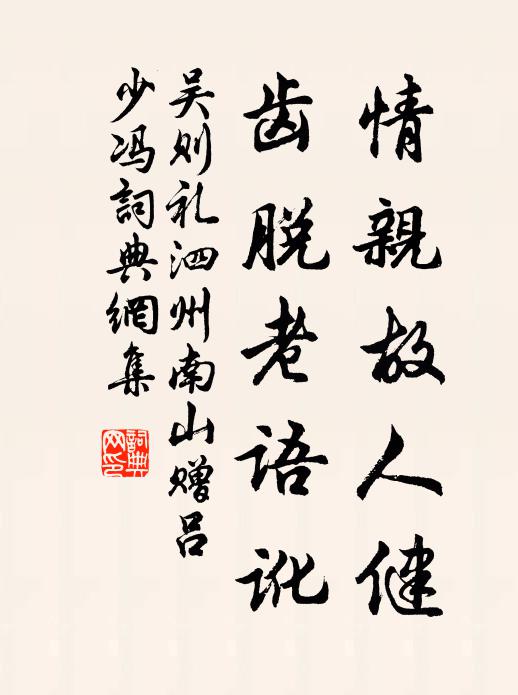 情親故人健
齿脱老語訛
吴则礼泗州南山赠吕
少冯詞典網集
詞典网印